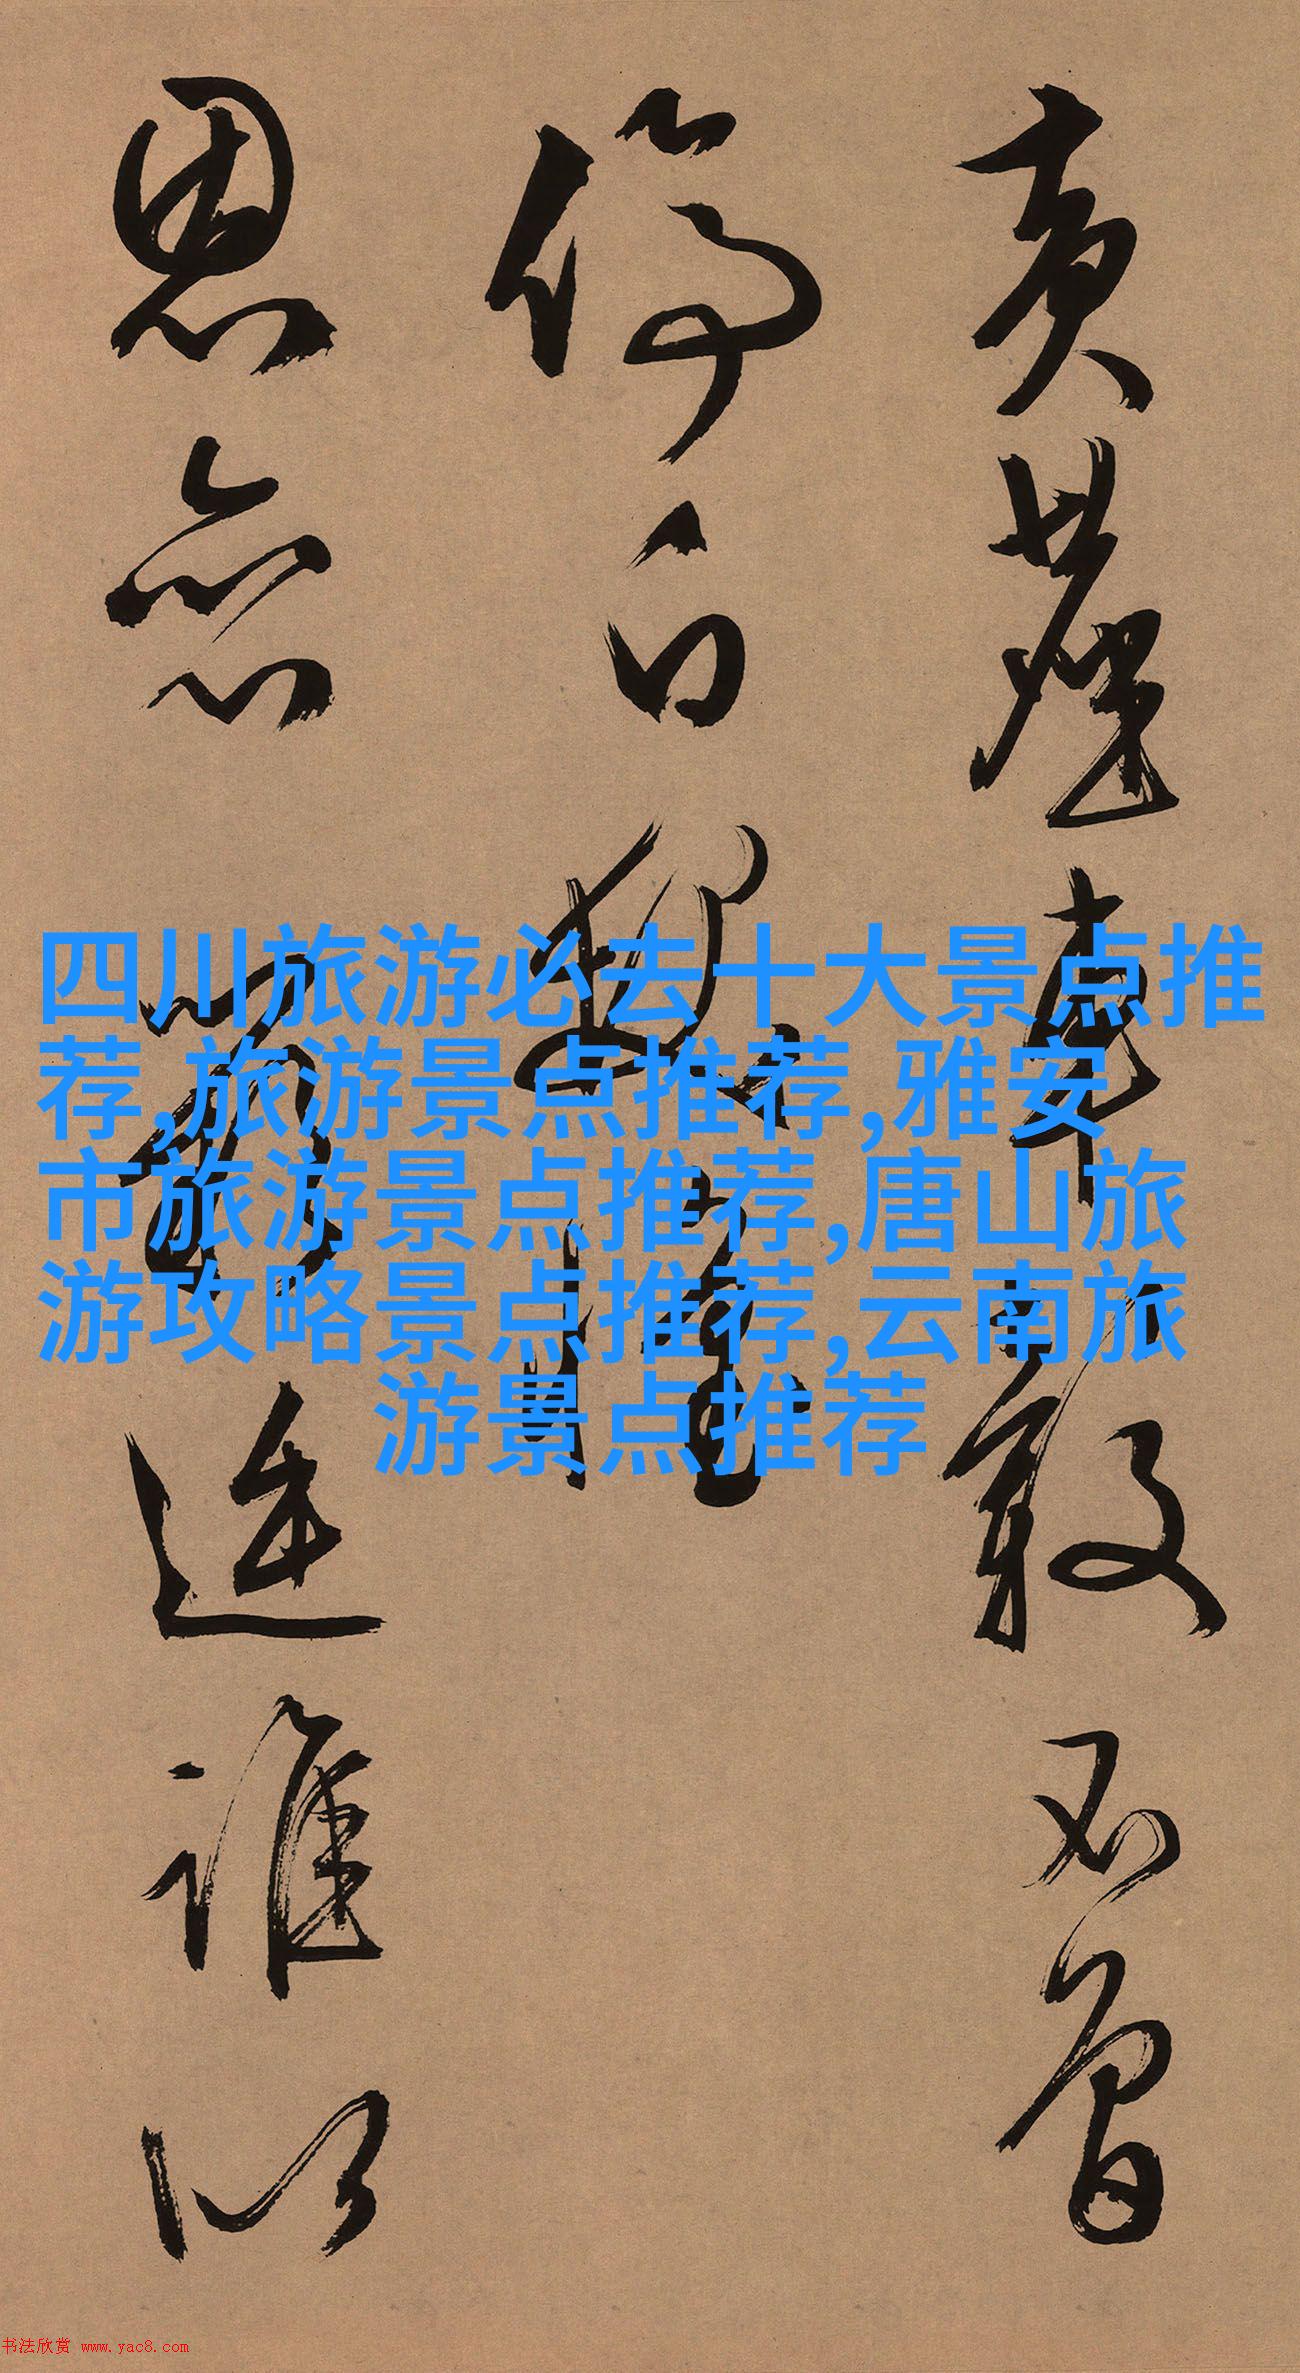 四川旅游必去十大景点推
荐,旅游景点推荐,雅安
市旅游景点推荐,唐山旅
游攻略景点推荐,云南旅
游景点推荐
黄塵車轂不曾
停白髮
恩誰以
书法欣赏 www.yac8.com